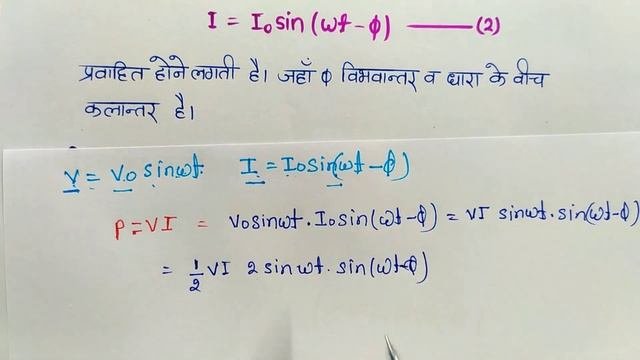 I = I₀ sin (ωt - ϕ) ——— (2)
प्रवाहित होने लगती है। जहाँ ϕ विभवान्तर व धारा के बीच
कलान्तर है।
V = V₀ sinωt. I = I₀ sin(ωt - ϕ)
P = VI = V₀ sinωt . I₀ sin(ωt - ϕ) = VI sinωt . sin(ωt - ϕ)
= 1/2 VI 2 sin ωt . sin(ωt - ϕ)